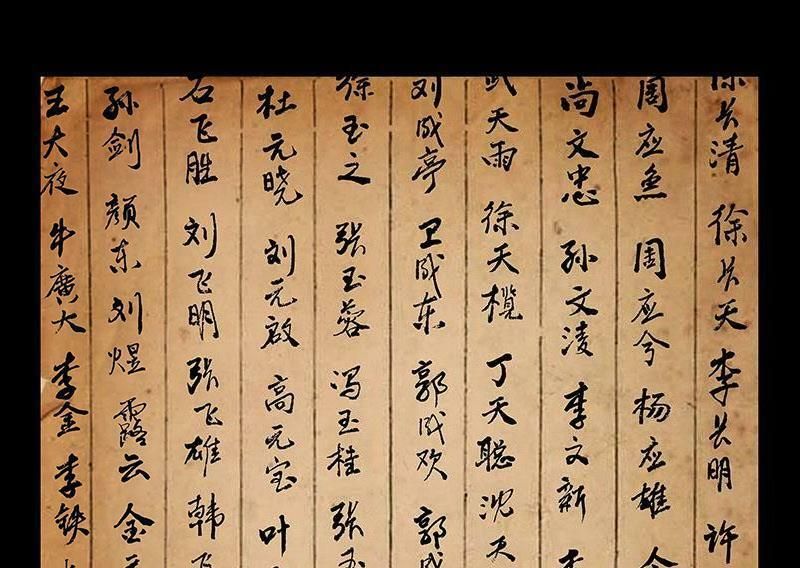 长清 徐长天 李长明 许
周应鱼 周应兮 杨应雄
尚文忠 孙文凌 李文新 李
武天雨 徐天榄 丁天聪 沈天
刘成亭 卫成东 郭成欢 郭成
徐玉之 张玉蓉 冯玉桂 张玉
杜元晓 刘元啟 高元宝 叶
石飞胜 刘飞明 张飞雄 韩飞
孙剑 颜东 刘煜 露云 金
王大夜 牛廣大 李金 李铁